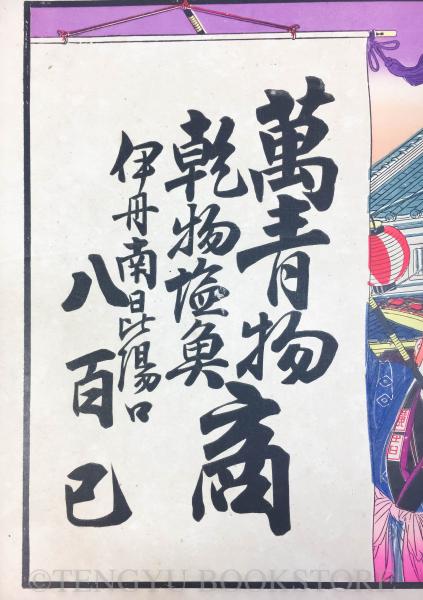 萬青物
乾物塩魚
商
伊丹南昆陽口
八百巳
©TENGYU BOOKSTORE